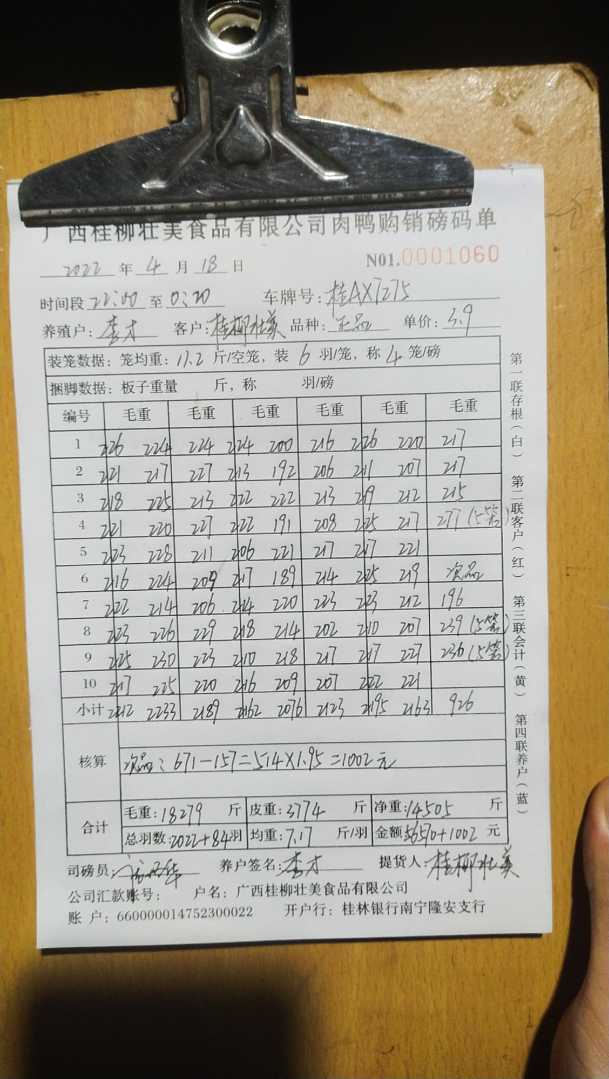 广西桂柳壮美食品有限公司肉鸭购销磅码单
2022 年 4 月 18 日 N01.0001060
时间段 22:00 至 0:20 车牌号: 桂AX7275
养殖户: 李才 客户: 桂柳壮美 品种: 正品 单价: 3.9
装笼数据: 笼均重: 17.2 斤/空笼, 装 6 羽/笼, 称 4 笼/磅
捆脚数据: 板子重量 斤, 称 羽/磅
编号 毛重 毛重 毛重 毛重 毛重
1 226 224 224 224 200 216 226 220 217
2 221 217 227 213 192 206 211 207 217
3 218 225 213 222 222 213 219 212 215
4 221 220 227 222 191 208 225 217 277(5笼)
5 223 228 211 206 221 217 217 221
6 216 224 209 217 189 214 225 219 次品
7 222 214 206 214 220 223 223 212 196
8 223 226 229 218 214 202 210 207 239(5笼)
9 225 230 223 210 218 217 217 227 236(5笼)
10 217 225 220 216 209 207 222 221
小计 2212 2233 2189 2162 2076 2123 2195 2163 926
核算 次品: 671-157=514×1.95=1002元
合计 毛重: 18279 斤 皮重: 3774 斤 净重: 14505 斤
总羽数: 2022+84羽 均重: 7.17 斤/羽 金额: 56570+1002 元
司磅员: 养户签名: 李才 提货人: 桂柳壮美
公司汇款账号: 户名: 广西桂柳壮美食品有限公司
账 户: 660000014752300022 开户行: 桂林银行南宁隆安支行
第一联存根(白) 第二联客户(红) 第三联会计(黄) 第四联养户(蓝)